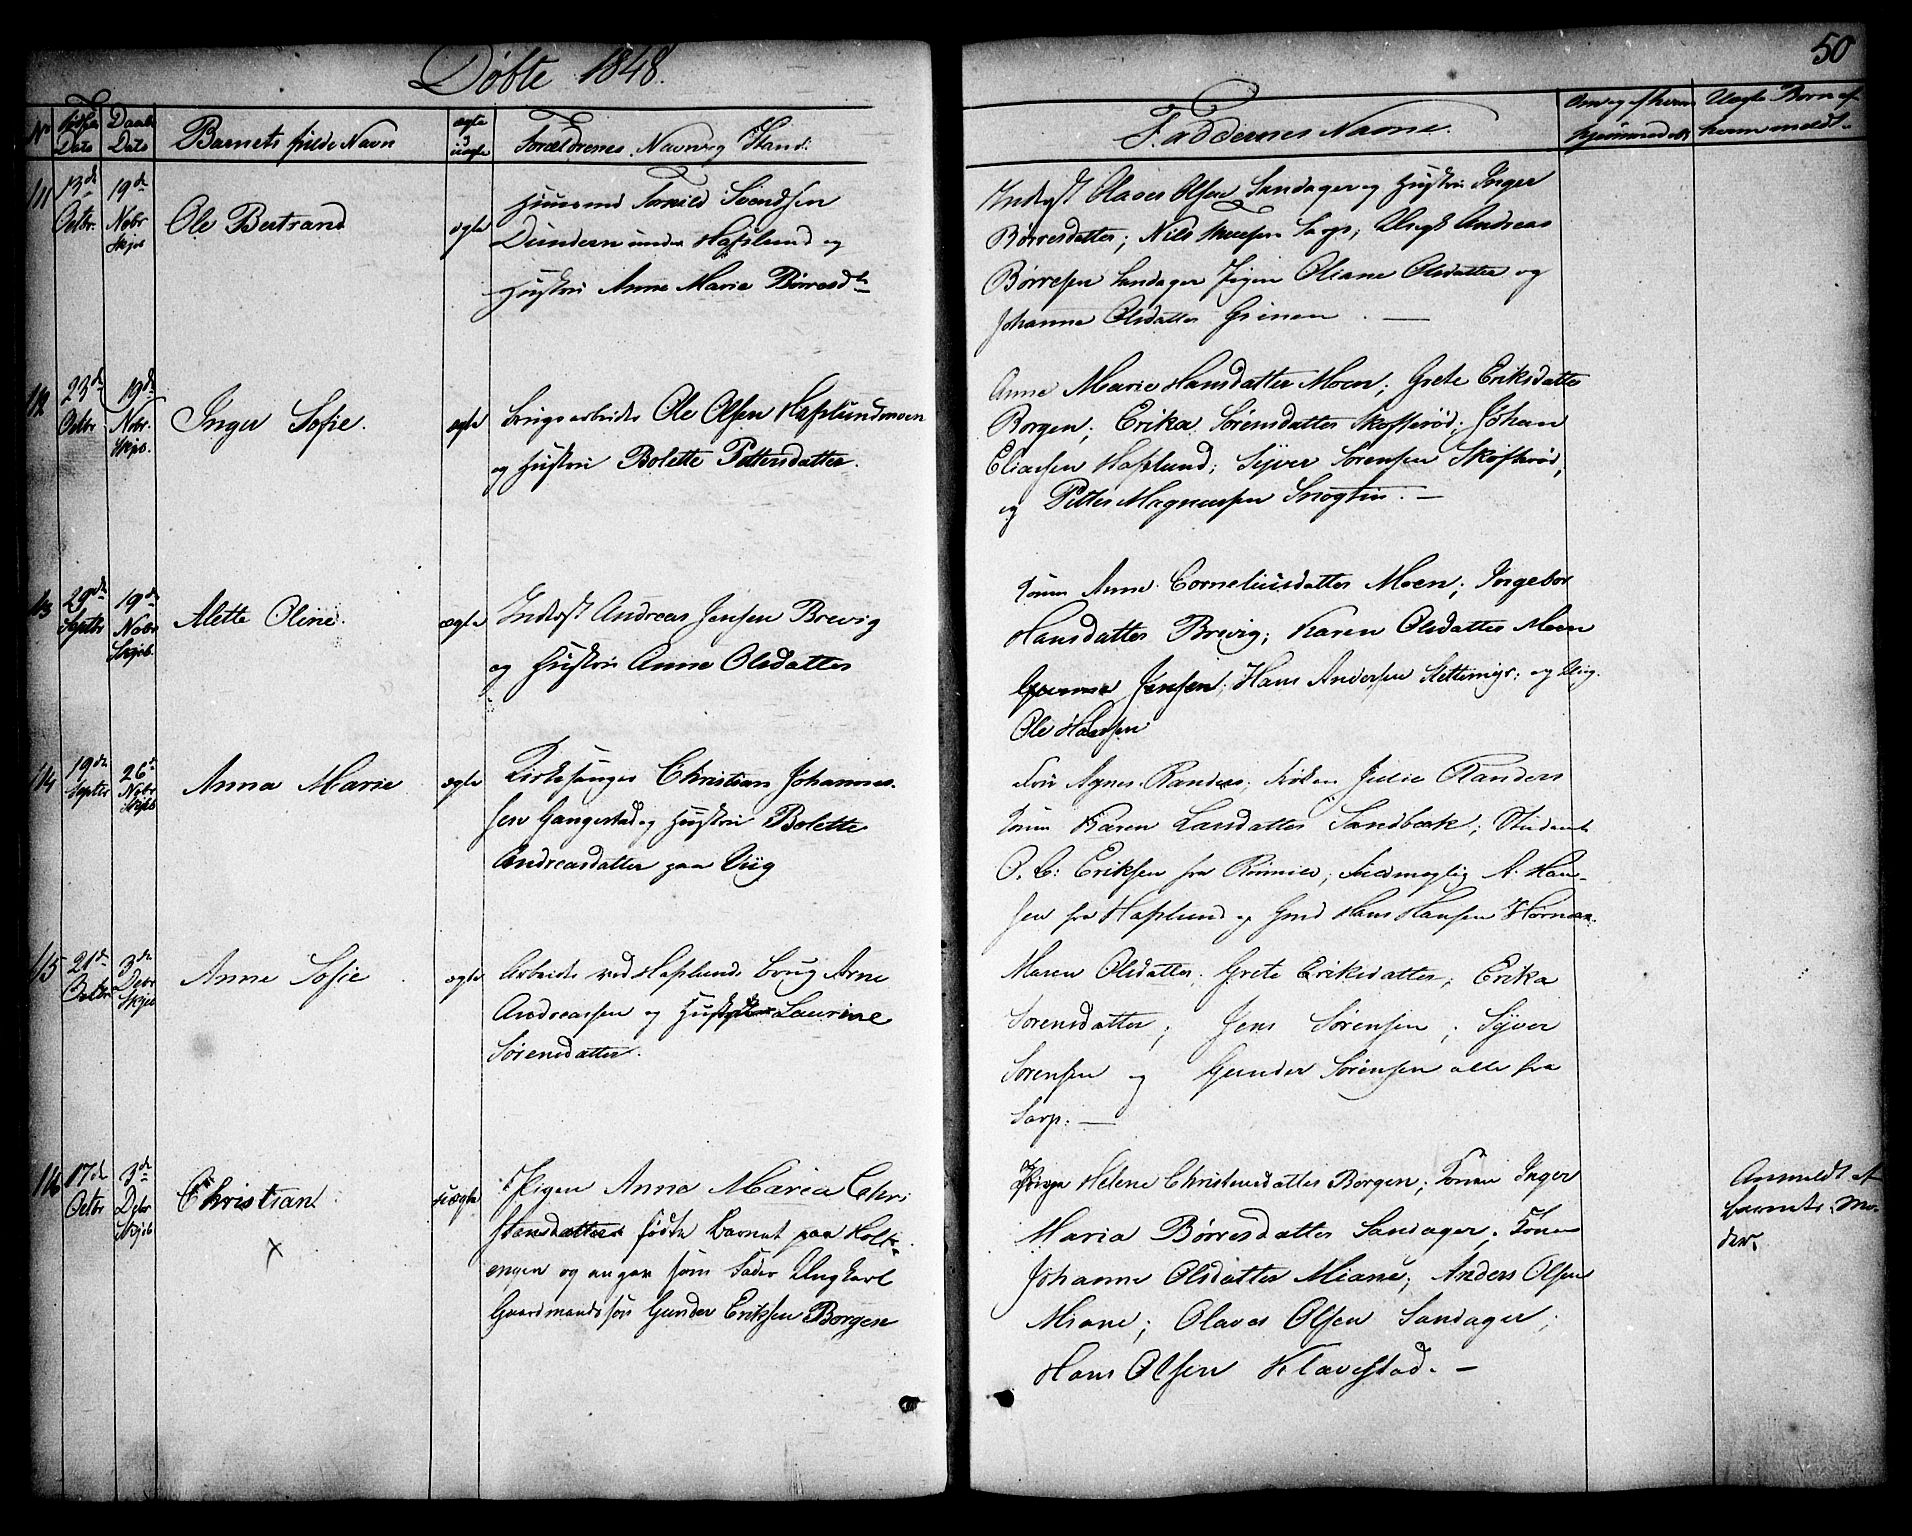 Døbte 1848.
50
No
Fødsels Dato
Daabs Dato
Barnets fulde Navn
ægte / uægte
Forældrenes Navn og Stand.
Faddernes Navne.
Uægte Børn af hvem meldt.
111
13de Octbr.
19de Nobr Skjeb
Ole Bertrand
ægte
Huusmand Torkild Svendsen
Dundern under Hafslund og
Hustru Anne Marie Børresdtr
Inderst Olaves Olsen Sandager og Hustru Inger
Børresdatter; Nils Sarp; Ungk Andreas
Børresen Sandager Pigen Oliane Olsdatter og
Johanne Olsdatter Grinen. —
112
23de Octbr
19de Nobr. Skjeb.
Inger Sofie.
ægte
Brugsarbeider Ole Olsen Hafslundmoen
og Hustru Bolette Pettersdatter.
Anne Marie Hansdatter Moen; Grete Eriksdatter
Borgen; Erika Sørensdatter Skofterød; Johan
Eliassen Hafslund; Syver Sørensen Skofterød;
og Petter Magnussen. —
113
29de Septbr
19de Nobr Skjeb.
Alette Oline.
ægte
Inderst Andreas Jensen Brevig
og Hustru Anne Olsdatter
Konen Anne Corneliusdatter Moen; Ingebor
Hansdatter Brevig; Karen Olsdatter Moen
Jensen; Hans Andersen; og Ung.
Ole Hansen
114
19de Septbr
26de Nobr Skjeb
Anna Marie
ægte
Kirkesanger Christian Johannes-
sen Gangestad og Hustru Bolette
Andreasdatter paa Viig
Fru Agnes Randers; Frøken Julie Randers
Konen Karen Larsdatter Sandbæk; Student
O. C: Eriksen fra; A. Han-
sen fra Hafslund og Gmd Hans Hansen
115
21de Octbr
3de Debr Skjeb
Anne Sofie
ægte
Arbeider ved Hafslunds Brug Arne
Andreassen og Hustru Laurine
Sørensdatter.
Maren Olsdatter; Grete Eriksdatter; Erika
Sørensdatter; Jens Sørensen; Syver
Sørensen og Gunder Sørensen alle fra
Sarp. —
116
17de Octbr
3de Debr Skjeb
Christian
x
uægte
Pigen Anna Maria Chri-
stiansdatter fødte Barnet paa Holt-
engen og angav som Fader Ungkarl
Gaardmandssøn Gunder Eriksen Borgen
Pigen Helene Christensdatter Borgen; Konen Inger
Maria Børresdatter Sandager; Konen
Johanne Olsdatter Miane; Anders Olsen
Miane; Olaves Olsen Sandager;
Hans Olsen Klavestad. —
Anmeldt af
barnets Mo-
der.